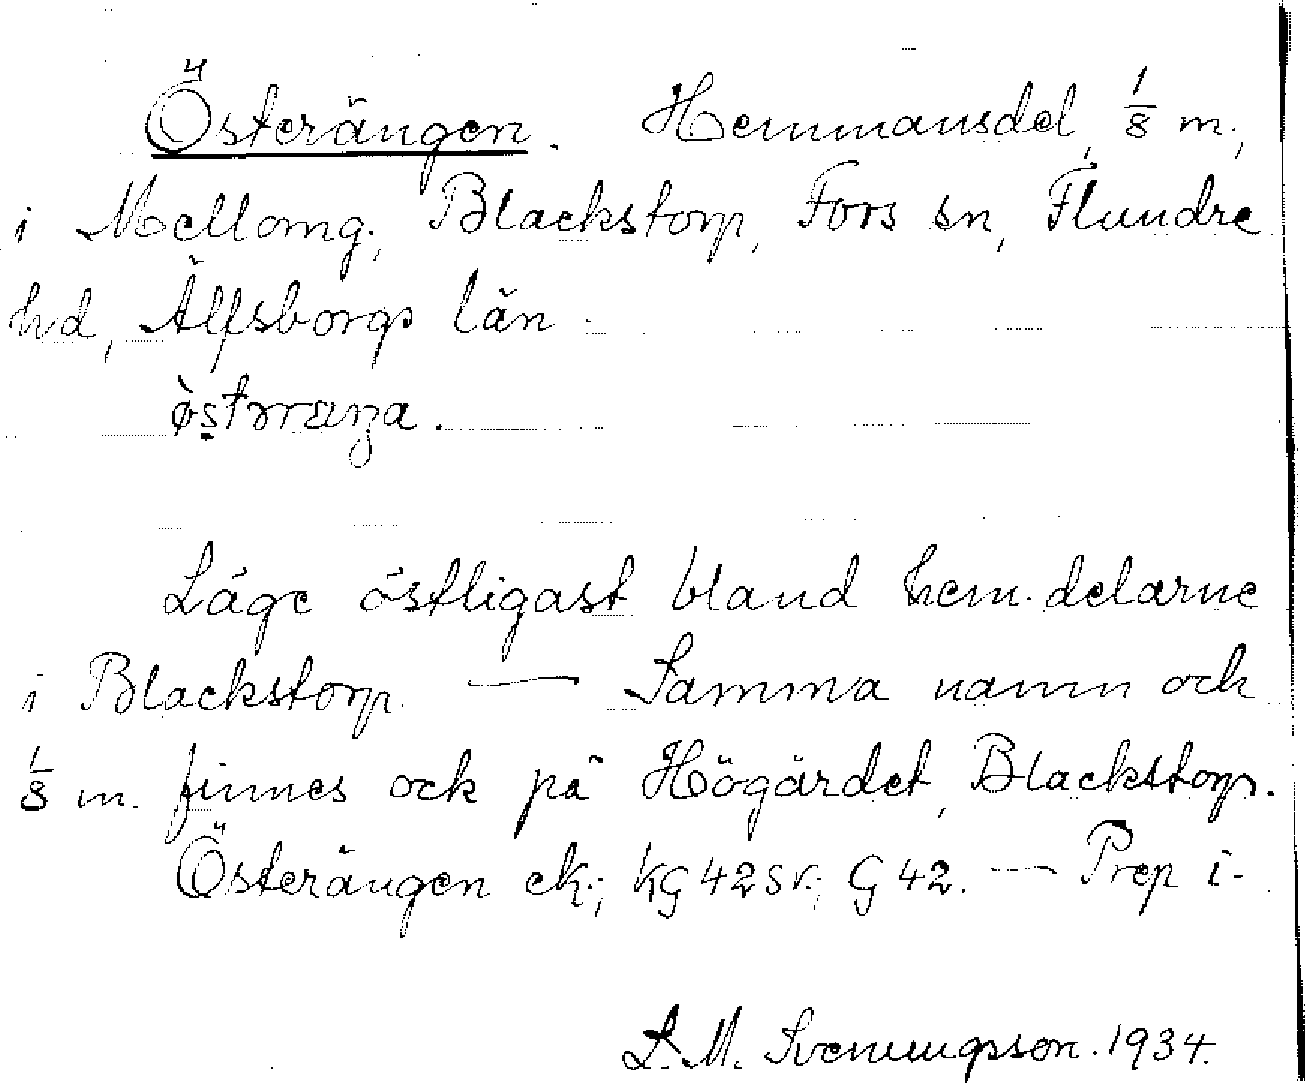 Österängen. Hemmansdel, 1/8 m.,
i Mellomg., Blackstorp, Fors sn, Flundre
hd, Älfsborgs län.
Läge östligast bland hem.delarne
i Blackstorp. — Samma namn och
1/8 m. finnes ock på Högärdet, Blackstorp.
Österängen ek.; KG 42 sv.; G 42. — Prep i-
L. M. Svenungsson. 1934.